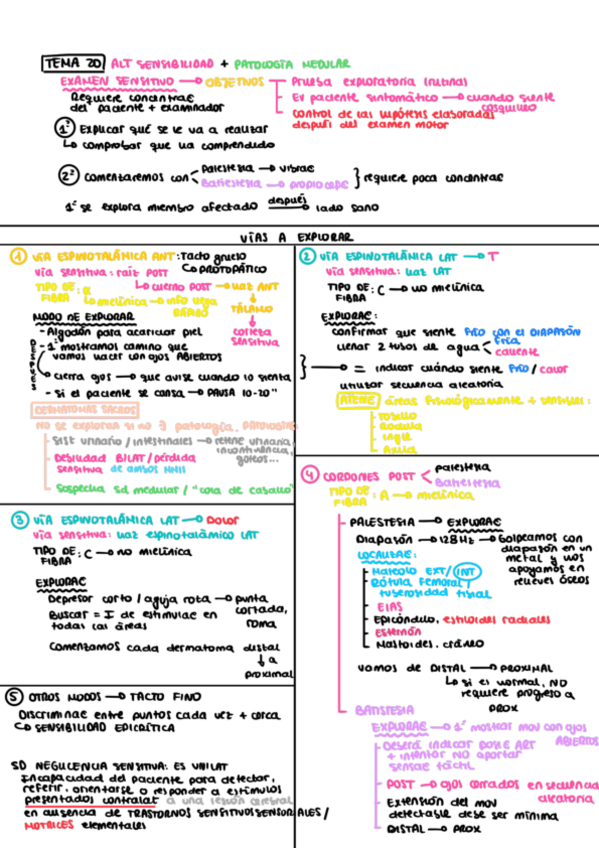 TEMA 20 ALT SENSIBILIDAD + PATOLOGÍA MEDULAR
EXAMEN SENSITIVO → OBJETIVOS
Prueba exploratoria rutina
En paciente sintomático → cuando siente cosquilleo
Control de las hipótesis elaboradas después del examen motor
Requiere concentrac del paciente + examinador
1º Explicar qué se le va a realizar
↳ comprobar que ha comprendido
2º Comenzaremos con
Palestesia → vibrac
Batiestesia → propiocepc
} requiere poca concentrac
1º se explora miembro afectado después → lado sano
VÍAS A EXPLORAR
1 VÍA ESPINOTALÁMICA ANT: Tacto grueso
↳ PROTOPÁTICO
Vía sensitiva: raíz POST
↳ cuerno POST → haz ANT
↓
TÁLAMO
↓
corteza sensitiva
TIPO DE FIBRA: α
↳ mielínica → info llega rápido
MODO DE EXPLORAR
- Algodón para acariciar piel
- 1º mostramos camino que vamos hacer con ojos ABIERTOS
DESPUÉS
cierra ojos → que avise cuando lo sienta
- Si el paciente se cansa → PAUSA 10-20"
DERMATOMAS SACROS
No se exploran si no ∃ patología. PATOLOGÍAS
Sist urinario / intestinales → retenc urinaria, incontinencia, goteos...
Debilidad BILAT / pérdida sensitiva de ambos MMII
Sospecha sd medular / "cola de caballo"
2 VÍA ESPINOTALÁMICA LAT → T
Vía sensitiva: haz LAT
TIPO DE FIBRA: C → no mielínica
EXPLORAC:
Confirmar que siente frío con el DIAPASÓN
Llenar 2 tubos de agua
fría
caliente
} → = indicar cuándo siente frío / calor
utilizar secuencia aleatoria
ATENC áreas fisiológicamente + sensibles:
Tobillo
Rodilla
Ingle
Axila
3 VÍA ESPINOTALÁMICA LAT → DOLOR
Vía sensitiva: haz espinotalámico LAT
TIPO DE FIBRA: C → no mielínica
EXPLORAC
Depresor corto / aguja rota → punta cortada, roma
Buscar = I de estimulac en todas las áreas
Comenzamos cada dermatoma distal
↓ a
proximal
4 CORDONES POST
palestesia
Batiestesia
TIPO DE FIBRA: A → mielínica
PALESTESIA → EXPLORAC
Diapasón → 128Hz → Golpeamos con diapasón en un metal y los apoyamos en relieves óseos
LOCALIZAC:
Maleolo EXT/INT
Rótula femoral / tuberosidad tibial
EIAS
Epicóndilo, estiloides radiales
Esternón
Mastoides, cráneo
Vamos de DISTAL → PROXIMAL
↳ Si es normal, NO requiere progreso a prox
BATISTESIA
EXPLORAC → 1º mostrar mov con ojos ABIERTOS
Deberá indicar posic ART + intentar NO aportar sensac táctil
POST → ojos cerrados en secuencia aleatoria
Extensión del mov detectable debe ser mínima
DISTAL → PROX
5 OTROS MODOS → TACTO FINO
Discriminac entre puntos cada vez + cerca
↳ SENSIBILIDAD EPICRÍTICA
SD NEGLIGENCIA SENSITIVA: ES UNILAT
Incapacidad del paciente para detectar, referir, orientarse o responder a estímulos presentados contralat a una lesión cerebral en ausencia de TRASTORNOS SENSITIVOSENSORIALES / MOTRICES elementales